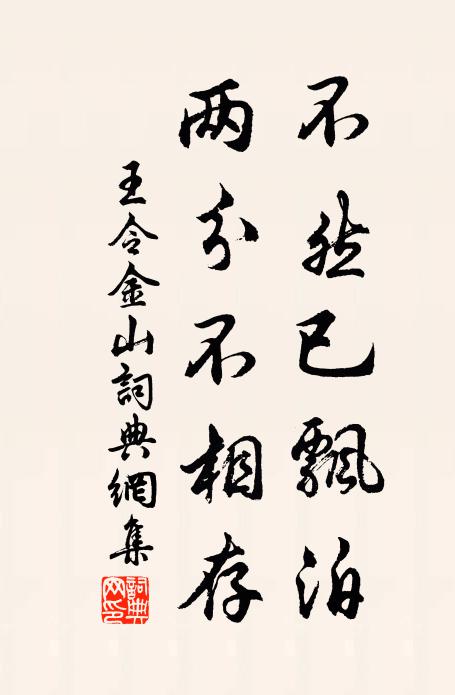 不然已飄泊
两分不相存
王令金山詞典網集
詞典网印